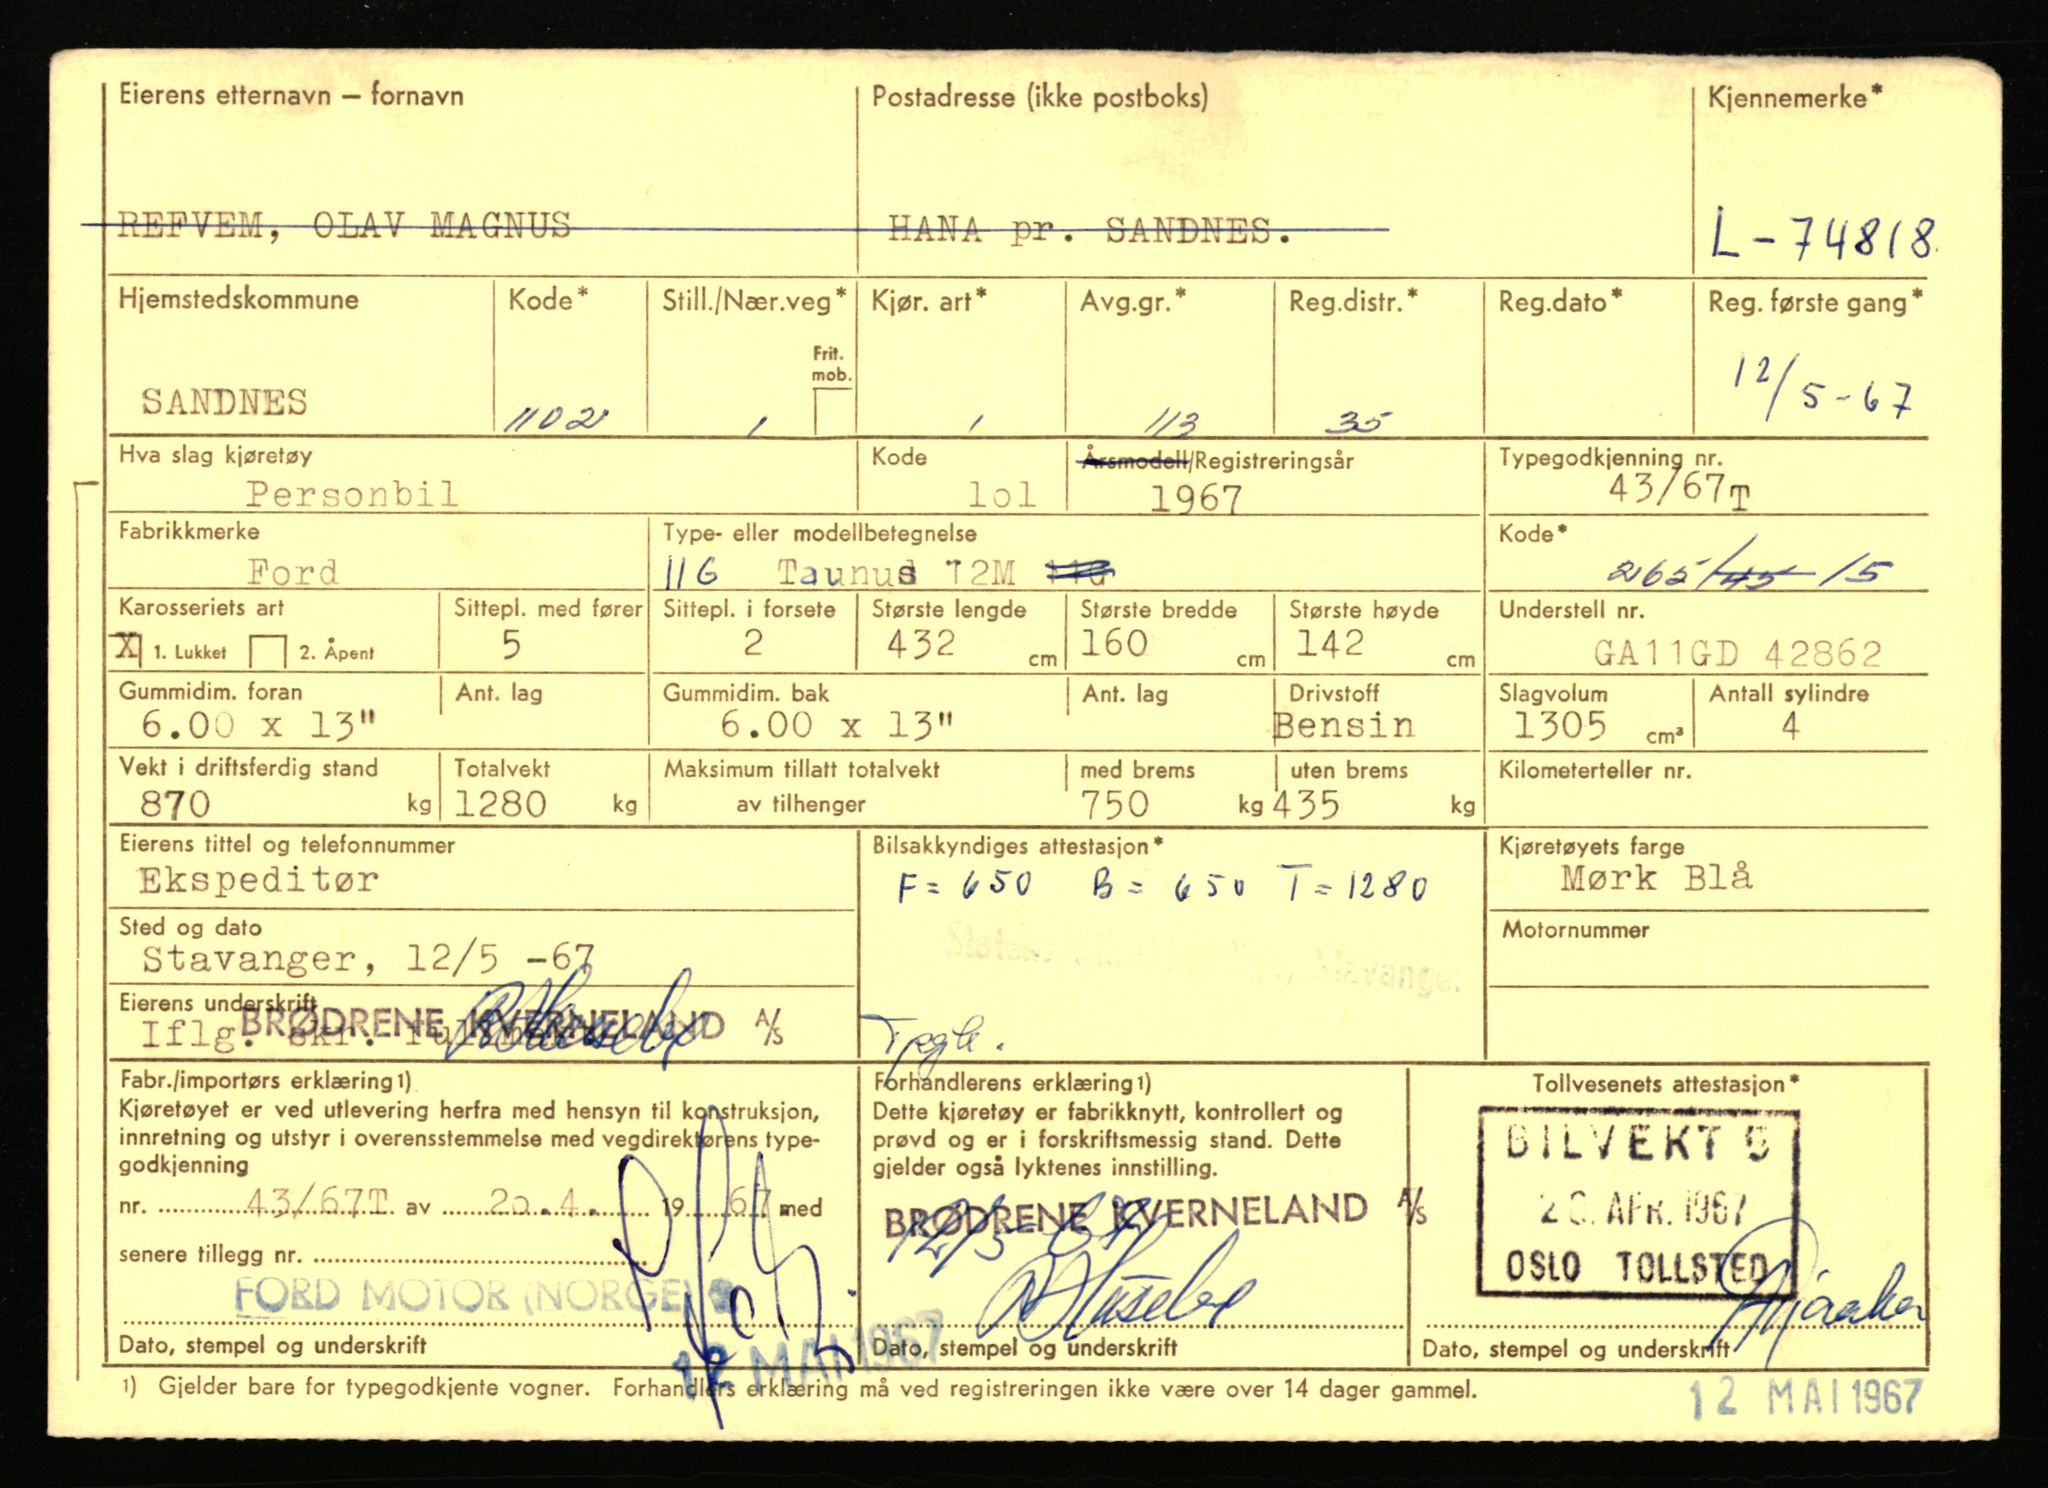 Eierens etternavn — fornavn Postadresse (ikke postboks) Kjennemerke*
REFVEM, OLAV MAGNUS HANA pr. SANDNES. L-74818
Hjemstedskommune Kode* Still./Nær.veg* Kjør. art* Avg.gr.* Reg.distr.* Reg.dato* Reg. første gang*
Frit.
mob.
12/5-67
SANDNES 1102 1 1 113 35
Hva slag kjøretøy Kode Årsmodell/Registreringsår Typegodkjenning nr.
Personbil lol 1967 43/67T
Fabrikkmerke Type- eller modellbetegnelse Kode*
Ford 11G Taunus 12M 265/45-15
Karosseriets art Sittepl. med fører Sittepl. i forsete Største lengde Største bredde Største høyde Understell nr.
X 1. Lukket 2. Åpent 5 2 432 cm 160 cm 142 cm GA11GD 42862
Gummidim. foran Ant. lag Gummidim. bak Ant. lag Drivstoff Slagvolum Antall sylindre
6.00 x 13" 6.00 x 13" Bensin 1305 cm³ 4
Vekt i driftsferdig stand Totalvekt Maksimum tillatt totalvekt med brems uten brems Kilometerteller nr.
870 kg 1280 kg av tilhenger 750 kg 435 kg
Eierens tittel og telefonnummer Bilsakkyndiges attestasjon* Kjøretøyets farge
Ekspeditør F = 650 B = 650 T = 1280 Mørk Blå
Sted og dato Motornummer
Stavanger, 12/5 -67 Stavanger
Eierens underskrift
BRØDRENE KVERNELAND A/S
Iflg. skr.
Fabr./importørs erklæring 1) Forhandlerens erklæring 1) Tollvesenets attestasjon*
Kjøretøyet er ved utlevering herfra med hensyn til konstruksjon,
innretning og utstyr i overensstemmelse med vegdirektørens type-
godkjenning
nr. 43/67T av 20.4. 19 67 med
senere tillegg nr.
FORD MOTOR (NORGE)
Dato, stempel og underskrift
12 MAI 1967
Dette kjøretøy er fabrikknytt, kontrollert og
prøvd og er i forskriftsmessig stand. Dette
gjelder også lyktenes innstilling.
BRØDRENE KVERNELAND A/S
12/5-67
Dato, stempel og underskrift
BILVEKT S
APR. 1967
OSLO TOLLSTED
Dato, stempel og underskrift
1) Gjelder bare for typegodkjente vogner. Forhandlers erklæring må ved registreringen ikke være over 14 dager gammel.
12 MAI 1967